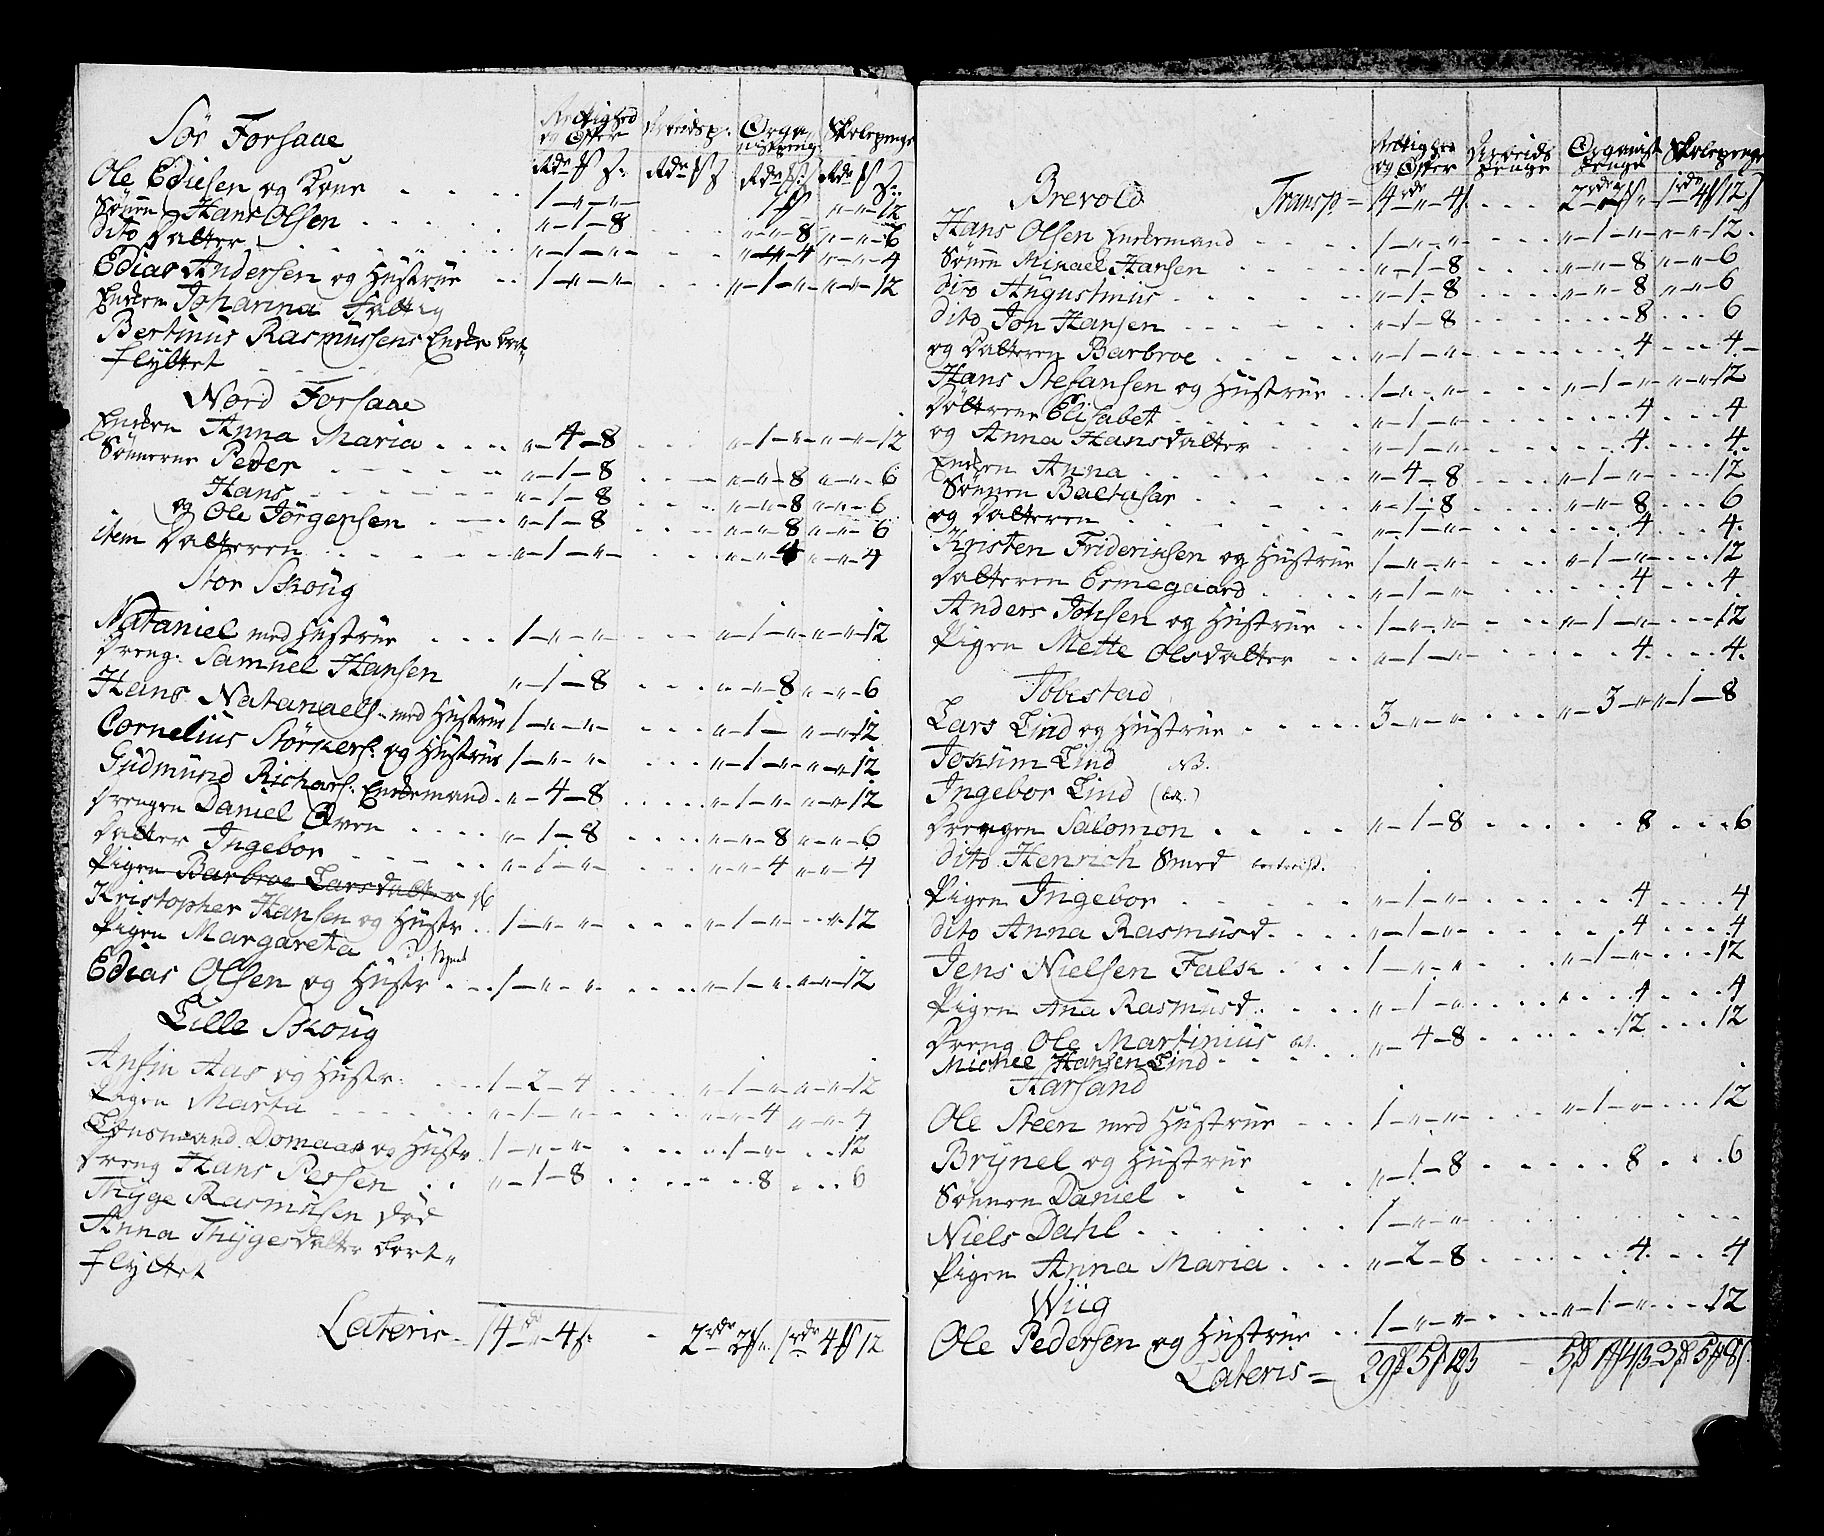 Sör Forsaae
Rettighed og Offer
Arbeidsp:
Orga nistpeng
Skolepenge
Rdr ß Rdr ß Rdr ß Rdr ß
Ole Ediesen og Kone 1 – " – " 1 " – " – 12
Sönen Hans Olsen " – 1 – 8 " – " – 8 " – " – 6
dito Datter " – 1 – " " – " – 4 " – " – 4
Edias Andersen og Hustrue 1 – " – " " – 1 – " " – " – 12
Enken Johanna Fattig
Bertinus Rasmussens Enke bort
flyttet
Nord Forsaae
Enken Anna Maria " – 4 – 8 " – 1 – " " – " – 12
Sönnerne Peder " – 1 – 8 " – " – 8 " – " – 6
Hans " – 1 – 8 " – " – 8 " – " – 6
og Ole Jörgensen " – 1 – 8 " – " – 8 " – " – 6
item Datteren " – 1 – " " – " – 4 " – " – 4
Stor Skoug
Nataniel med Hustrue 1 – " – " " – 1 – " " – " – 12
Dreng: Samuel Hansen " – 1 – 8 " – " – 8 " – " – 6
Hans Natanaels: med Hustrue 1 – " – " " – 1 – " – " – 12
Cornelius Störkers: og Hustrue 1 – " – " " – 1 – " " – " – 12
Gudmund Richars: Enkemand " – 4 – 8 " – 1 – " " – " – 12
Drengen Daniel Oven " – 1 – 8 " – " – 8 " – " – 6
Datter Ingebor " – 1 – " " – " – 4 " – " – 4
Pigen Barbroe Larsdatter
Kristopher Hansen og Hustr. 1 – " – " " – 1 – " " – 12
Pigen Margareta
Edias Olsen og Hustr 1 – " – " " – 1 – " " – " – 12
Lille Skoug
Ansin Aus og Hustr: 1 – 2 – 4 " – 1 – " " – " – 12
Pigen Marta " – 1 – " " – " – 4 " – " – 4
Lensmand Domaas og Hustr 1 – " – " 1 – " 12
Dreng Hans Persen " – 1 – 8 8 6
Thyge Rasmusen död
Anna Thygesdatter bort"
flyttet
Lateris 14 rdr " – 4 ß 2 rdr 2 ß 1 rdr 4 ß 12

Rettighed og Offer
Arbeids Penge
Organist Penge
Skolepenge
Brevold Transp = 14 rdr – " – 4 ß 2 rdr 2 ß 1 rdr 4 ß 12 ß
Hans Olsen Enkemand 1 – " – " " – 1 – " " – " – 12
Sönen Mikael Hansen " – 1 – 8 " – " – 8 " – " – 6
dito Angustinus " – 1 – 8 " – " – 8 " – " – 6
dito Jon Hansen " – 1 – 8 8 6
og Datteren Barbroe " – 1 – " 4 4
Hans Stefansen og Hustrue 1 – " – " " – 1 – " " – " – 12
Dötterne Elisabet " – 1 – " 4 4
og Anna Hansdatter " – 1 – " 4 4
Enken Anna " – 4 – 8 " – 1 – " 12
Sönnen Baltusar " – 1 – 8 " – " – 8 6
og Datteren " – 1 – " 4 4
Kristen Fridericksen og Hustrue 1 – " – " " – 1 – " 12
Datteren Ermegaard " – 1 – " 4 4
Anders Johsen og Hustrue 1 – " – " " – 1 – " 12
Pigen Mette Olsdatter " – 1 – " 4 4
Tobestad
Lars Lind og Hustrue 3 – " – " " – 3 – " " – 1 – 8
Jokum Lind NB.
Ingebor Lind
Drengen Salomon " – 1 – 8 8 6
dito Henrich Smed
Pigen Ingebor " – 1 – " 4 4
dito Anna Rasmusd. " – 1 – " 4 4
Jens Nielsen Falk 1 – " – " " – 1 – " 12
Pigen Ana Rasmusd. " – 1 – " 4 4
Dreng Ole Martinius " – 4 – 8 12 12
Michel Hansen Lind
Harsand
Ole Steen med Hustrue 1 – " – " " – 1 – " 12
Brynel og Hustrue
Sönnen Daniel " – 1 – 8 8 6
Niels Dahl 1 – " – "
Pigen Anna Maria " – 2 – 8 4 4
Wiig
Ole Pedersen og Hustrue 1 – " – " " – 1 – " 12
Lateris = 29 5 12 5 1 4 – 3 5 8